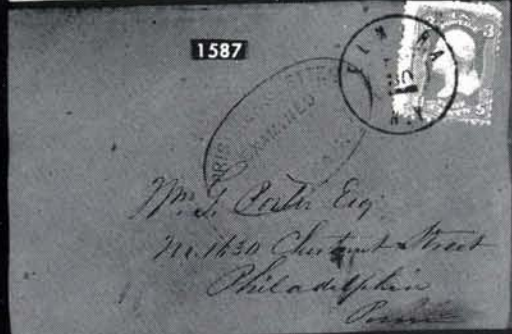 1587
3
ELMIRA
N.Y.
EXAMINED
Wm. G. Porter Esq
No. 1630 Chestnut Street
Philadelphia
Penna